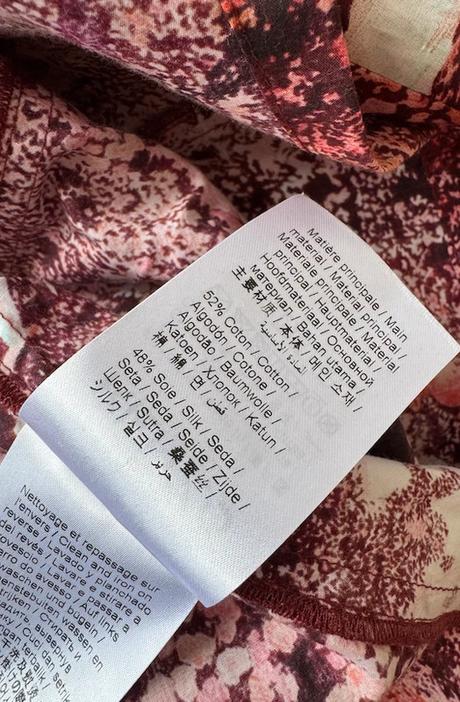 Matière principale / Main
material / Material principal /
Materiale principale / Material
principal / Hauptmaterial /
Hoofdmateriaal / Основной
материал / Bahan utama /
主要材质 / 本体 / 메인 소재 /
المادة الأساسية
52% Coton / Cotton /
Algodón / Cotone /
Algodão / Baumwolle /
Katoen / Хлопок / Katun /
棉 / 綿 / 면 / قطن
48% Soie / Silk / Seda /
Seta / Seda / Seide / Zijde /
Шелк / Sutra / 桑蚕丝 /
シルク / 실크 / حرير
Nettoyage et repassage sur
l'envers / Clean and iron on
reverse / Lavado y planchado
del revés / Lavare e stirare a
rovescio / Lavar e passar a
do avesso / Auf links
bügeln /
wassen en
strijken / Стирать и
вывернув
Cuci dan setrika